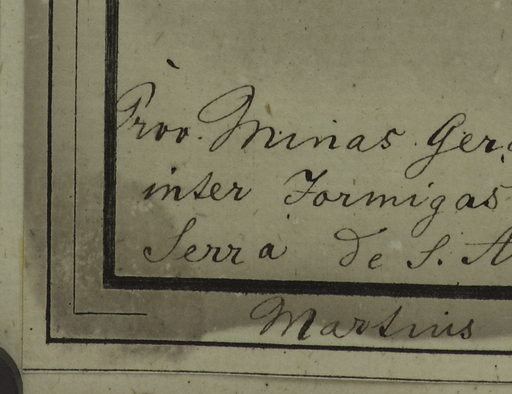 Prov. Minas Ger
inter Formigas
Serra de S. A
Martius